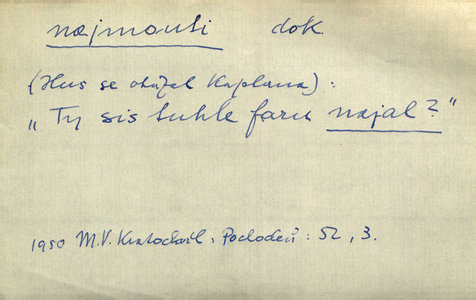 najmouti dok.
(Hus se otázal Kaplana):
„Ty sis tuhle faru najal?"
1950 M.V. Kratochvíl: Pochodeň: 52, 3.